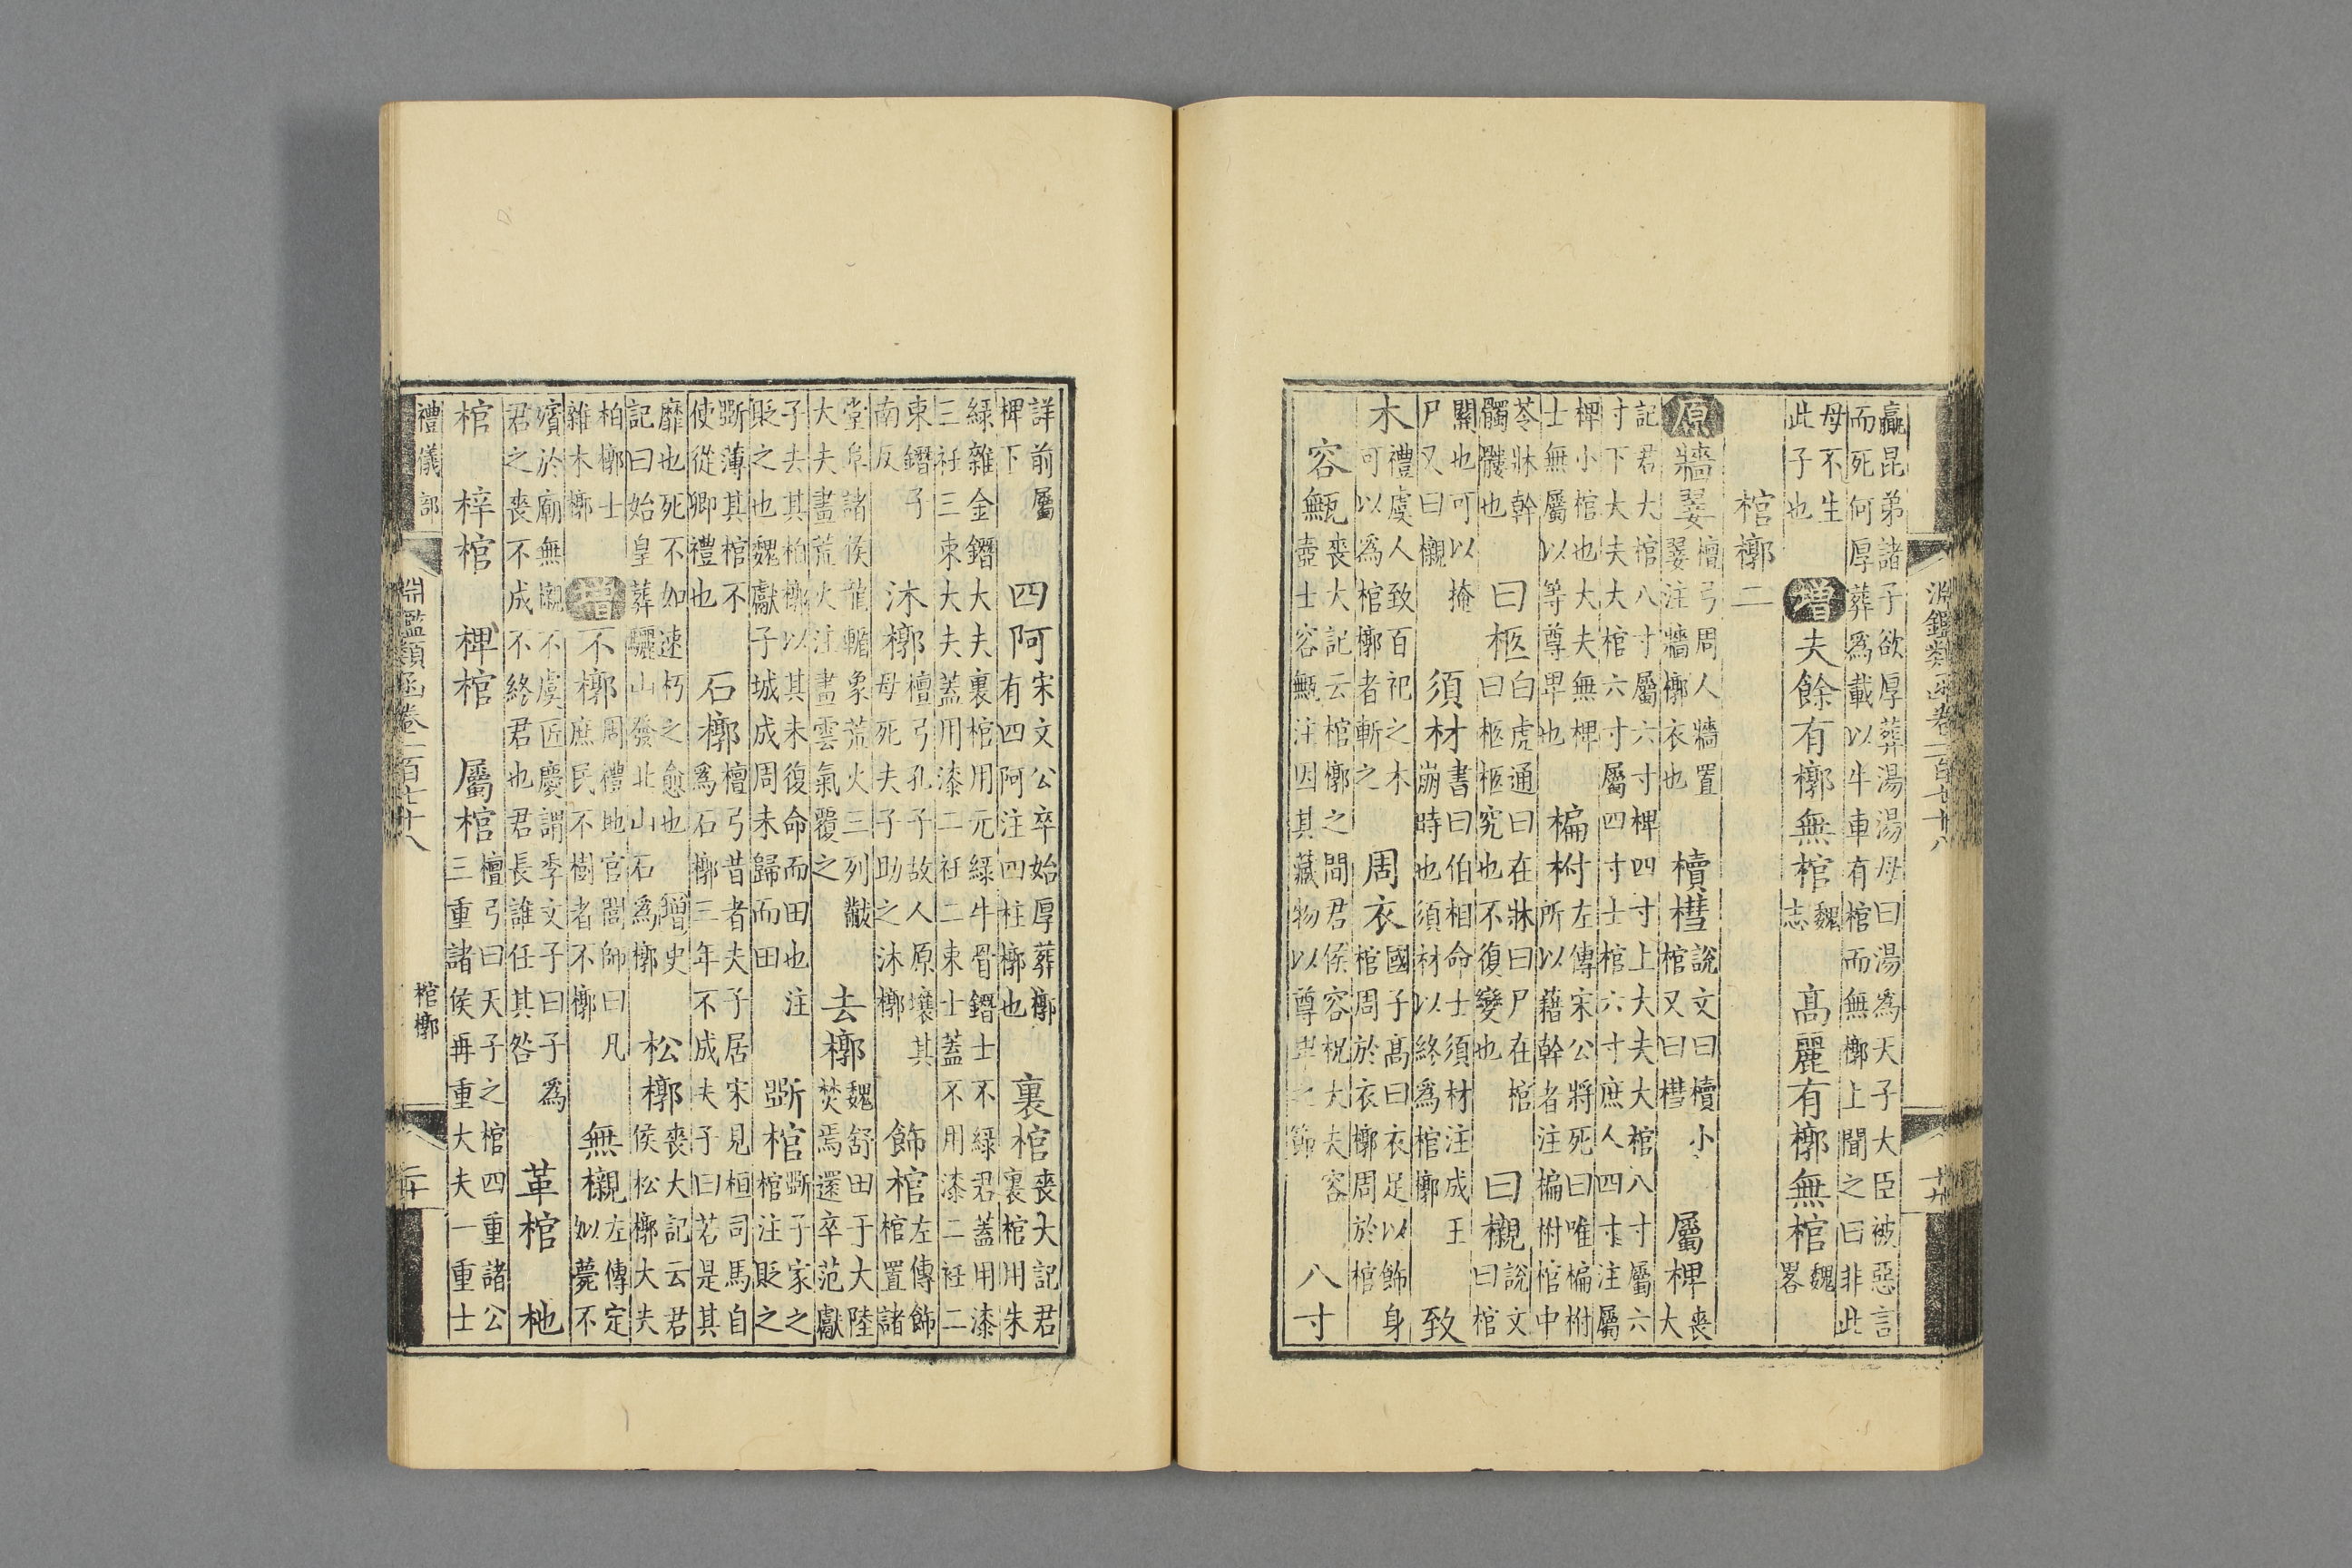 淵鑑類函卷一百七十八
十九
羸昆弟諸子欲厚葬湯湯母曰湯為天子大臣被惡言
而死何厚葬為載以牛車有棺而無槨上聞之曰非此
母不生
此子也
增
夫餘有槨無棺
魏
志
高麗有槨無棺
魏
畧
棺槨二
原
牆翣
檀弓周人牆置
翣注牆槨衣也
櫝槥
說文曰櫝小
棺又曰槥
屬椑
喪大
記君大棺八寸屬六寸椑四寸上大夫大棺八寸屬六
寸下大夫大棺六寸屬四寸士棺六寸庶人四寸注屬
椑小棺也大夫無椑
士無屬以等尊畢也
楄柎
左傳宋公將死曰唯楄柎
所以藉幹者注楄柎棺中
苓牀幹
髑髏也
曰柩
白虎通曰在牀曰尸在棺
曰柩柩究也不復變也
曰櫬
說文
曰棺
關也可以掩
尸又曰櫬
須材
書曰伯相命士須材注成王
崩時也須材以終為棺槨
致
木
禮虞人致百祀之木
可以為棺槨者斬之
周衣
國子高曰衣足以飾身
棺周於衣槨周於棺
八寸
容甒
喪大記云棺槨之間君侯容柷大夫容
壺士容甒注因其藏物以尊畢之飾
詳前屬
椑下
四阿
宋文公卒始厚葬槨
有四阿注四柱槨也
裏棺
喪大記君
裏棺用朱
綠雜金鐕大夫裏棺用元綠牛骨鐕士不綠君蓋用漆
三衽三束大夫蓋用漆二衽二束士蓋不用漆二衽二
束鐕子
南反
沐槨
檀弓孔子故人原壤其
母死夫子助之沐槨
飾棺
左傳飾
棺置諸
堂阜諸侯龍輴象荒火三列黻
大夫畫荒火注畫雲氣覆之
去槨
魏舒田于大陸
焚焉還卒范獻
子去其柏槨以其未復命而田也注
貶之也魏獻子城成周未歸而田
斲棺
斲子家之
棺注貶之
斲薄其棺不
使從卿禮也
石槨
檀弓昔者夫子居宋見桓司馬自
為石槨三年不成夫子曰若是其
靡也死不如速朽之愈也增史
記曰始皇葬驪山發北山石為槨
松槨
喪大記云君
侯松槨大夫
柏槨士
雜木槨
增
不槨
周禮地官閭師曰凡
庶民不樹者不槨
無櫬
左傳定
姒薨不
殯於廟無櫬不虞匠慶謂季文子曰子為
君之喪不成不終君也君長誰任其咎
革棺
杝
棺
梓棺
椑棺
屬棺
檀弓曰天子之棺四重諸公
三重諸侯再重大夫一重士
禮儀部
淵鑑類函卷一百七十八
棺槨
二十